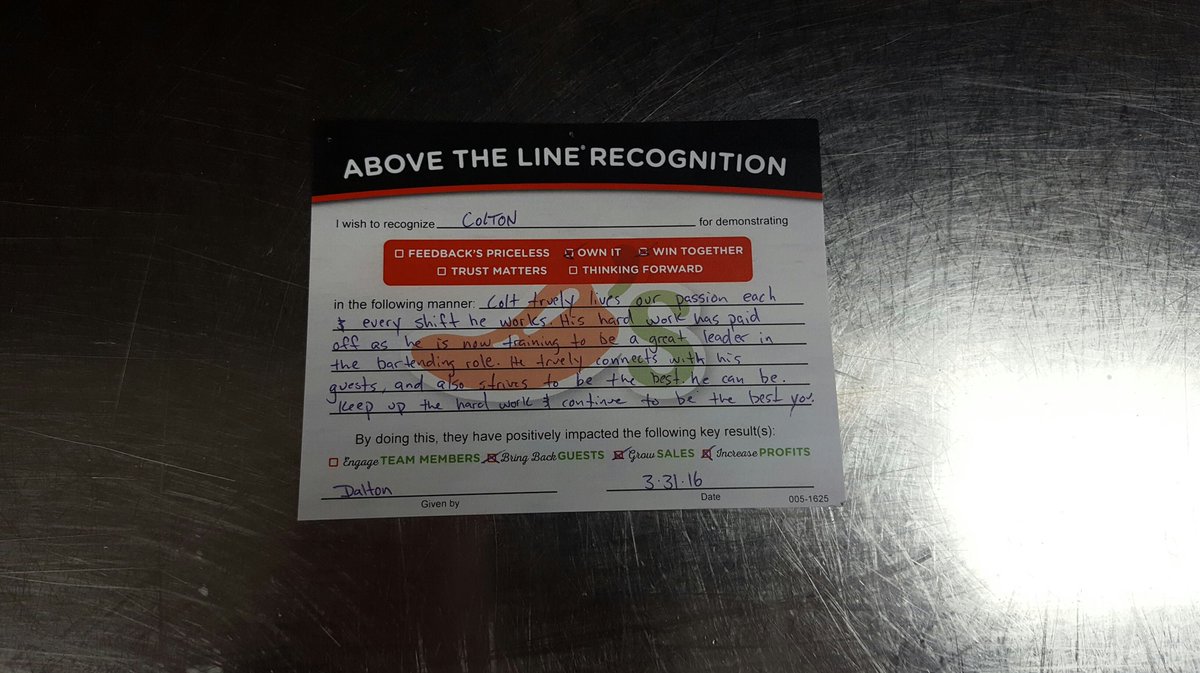 ABOVE THE LINE® RECOGNITION
I wish to recognize COLTON for demonstrating
☐ FEEDBACK'S PRICELESS ☒ OWN IT ☒ WIN TOGETHER
☐ TRUST MATTERS ☐ THINKING FORWARD
in the following manner: Colt truely lives our passion each
& every shift he works. His hard work has paid
off as he is now training to be a great leader in
the bartending role. He truely connects with his
guests, and also strives to be the best he can be.
Keep up the hard work & continue to be the best you.
By doing this, they have positively impacted the following key result(s):
☐ Engage TEAM MEMBERS ☒ Bring Back GUESTS ☒ Grow SALES ☒ Increase PROFITS
Dalton 3·31·16
Given by Date 005-1625